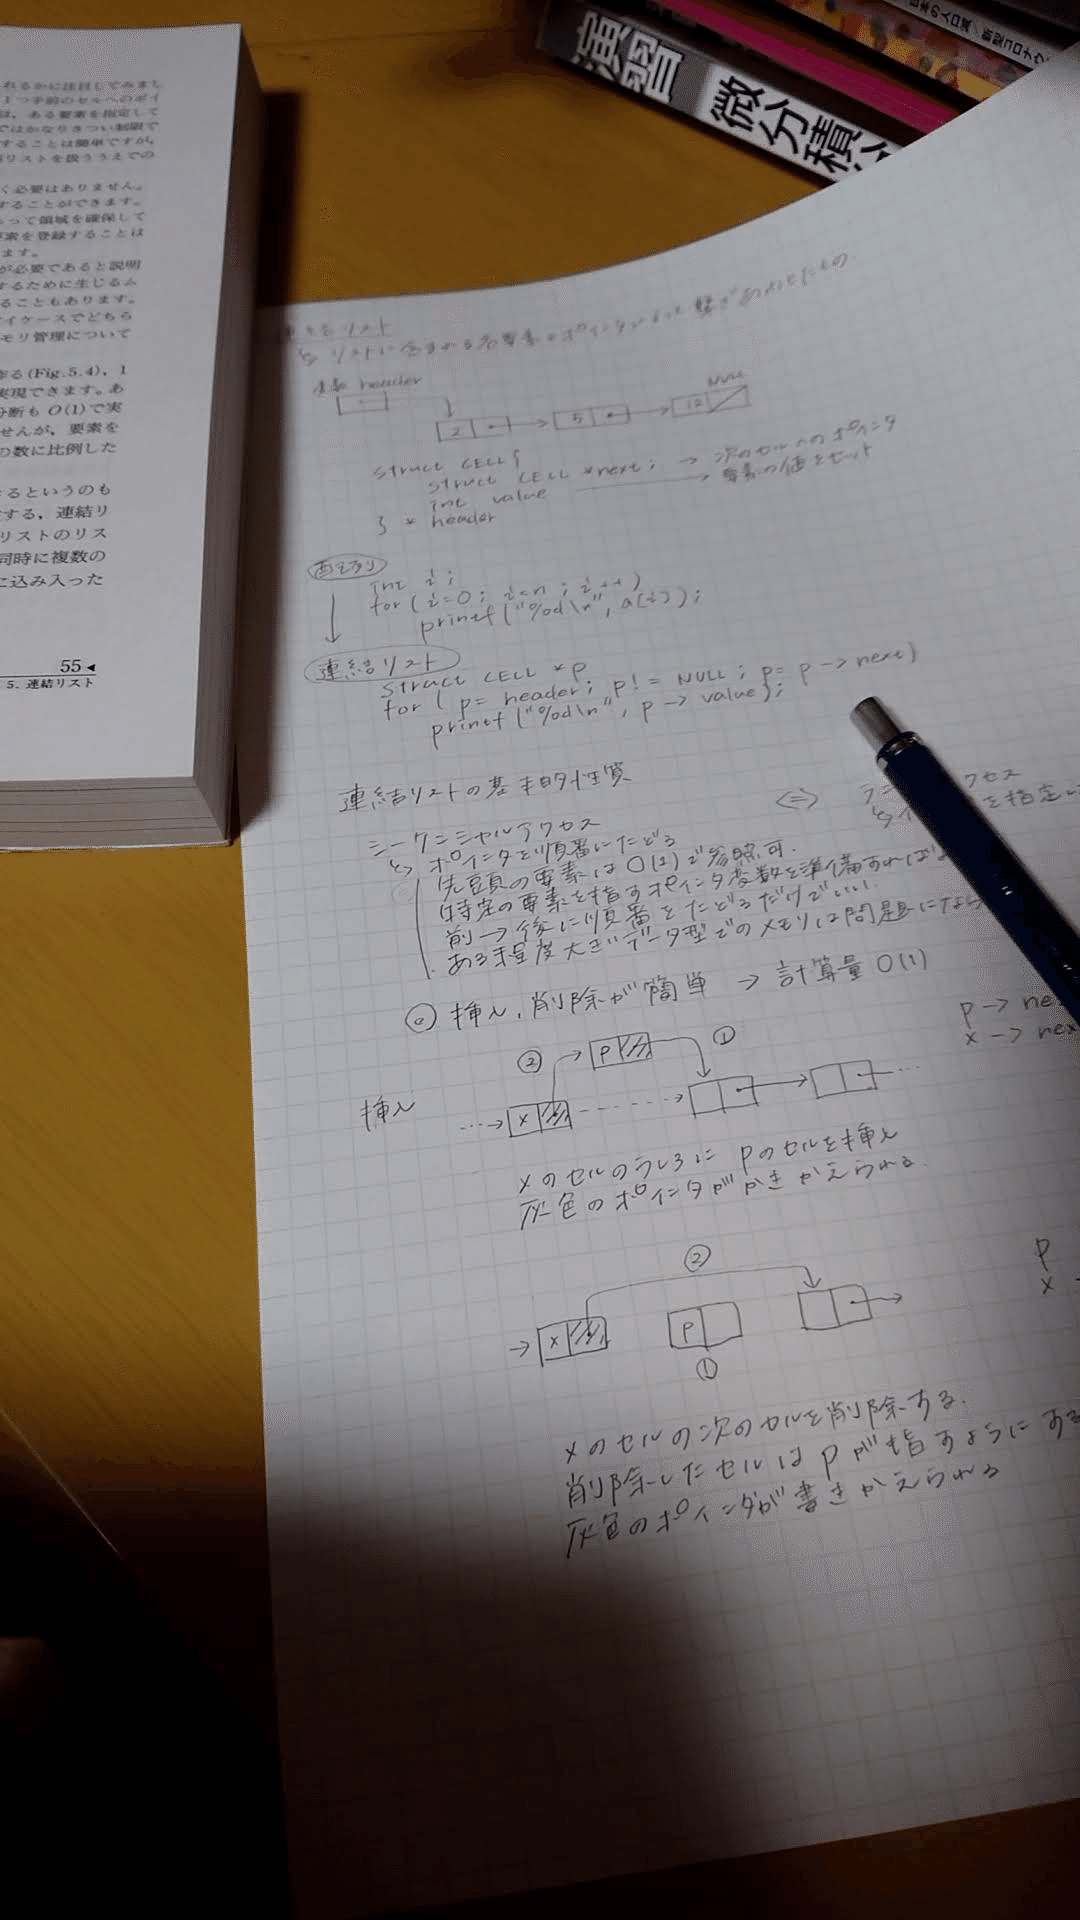 演習 微分積分
れるかに注目してみまし
1つ手前のセルへのポイ
は，ある要素を指定して
ではかなりきつい制限で
することは簡単ですが，
リストを扱ううえでの
く必要はありません。
することができます。
って領域を確保して
要素を登録することは
ます。
が必要であると説明
するために生じるム
ることもあります。
イケースでどちら
モリ管理について
作る(Fig.5.4)，1
実現できます。あ
分断も O(1)で実
せんが，要素を
の数に比例した
るというのも
する，連結リ
リストのリス
同時に複数の
に込み入った
55
5. 連結リスト
リスト
header
NULL
2 5 12
struct CELL {
struct CELL *next; → 次のセルへのポインタ
int value → 要素の値をセット
} * header
配列
int i;
for (i=0; i<n; i++)
printf("%d\n", a[i]);
連結リスト
struct CELL *p
for ( p= header; p!= NULL; p= p -> next)
printf("%d\n", p -> value);
連結リストの基本的性質
シーケンシャルアクセス
↳ ポインタを順番にたどる
先頭の要素は O(1)で参照可.
特定の要素を指すポインタ変数を準備すれば
前→後に順番をたどるだけでいい.
ある程度大きいデータ型でのメモリは問題になら
⇔
クセス
を指定し
挿入, 削除が簡単 → 計算量 O(1)
p -> ne
x -> nex
② p ①
挿入
x
xのセルのうしろに pのセルを挿入
灰色のポインタがかきかえられる.
②
p
x
x p
①
xのセルの次のセルを削除する.
削除したセルは pが指すようにする
灰色のポインタが書きかえられる